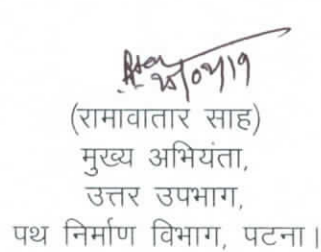 (रामावतार साह)
मुख्य अभियंता,
उत्तर उपभाग,
पथ निर्माण विभाग, पटना।